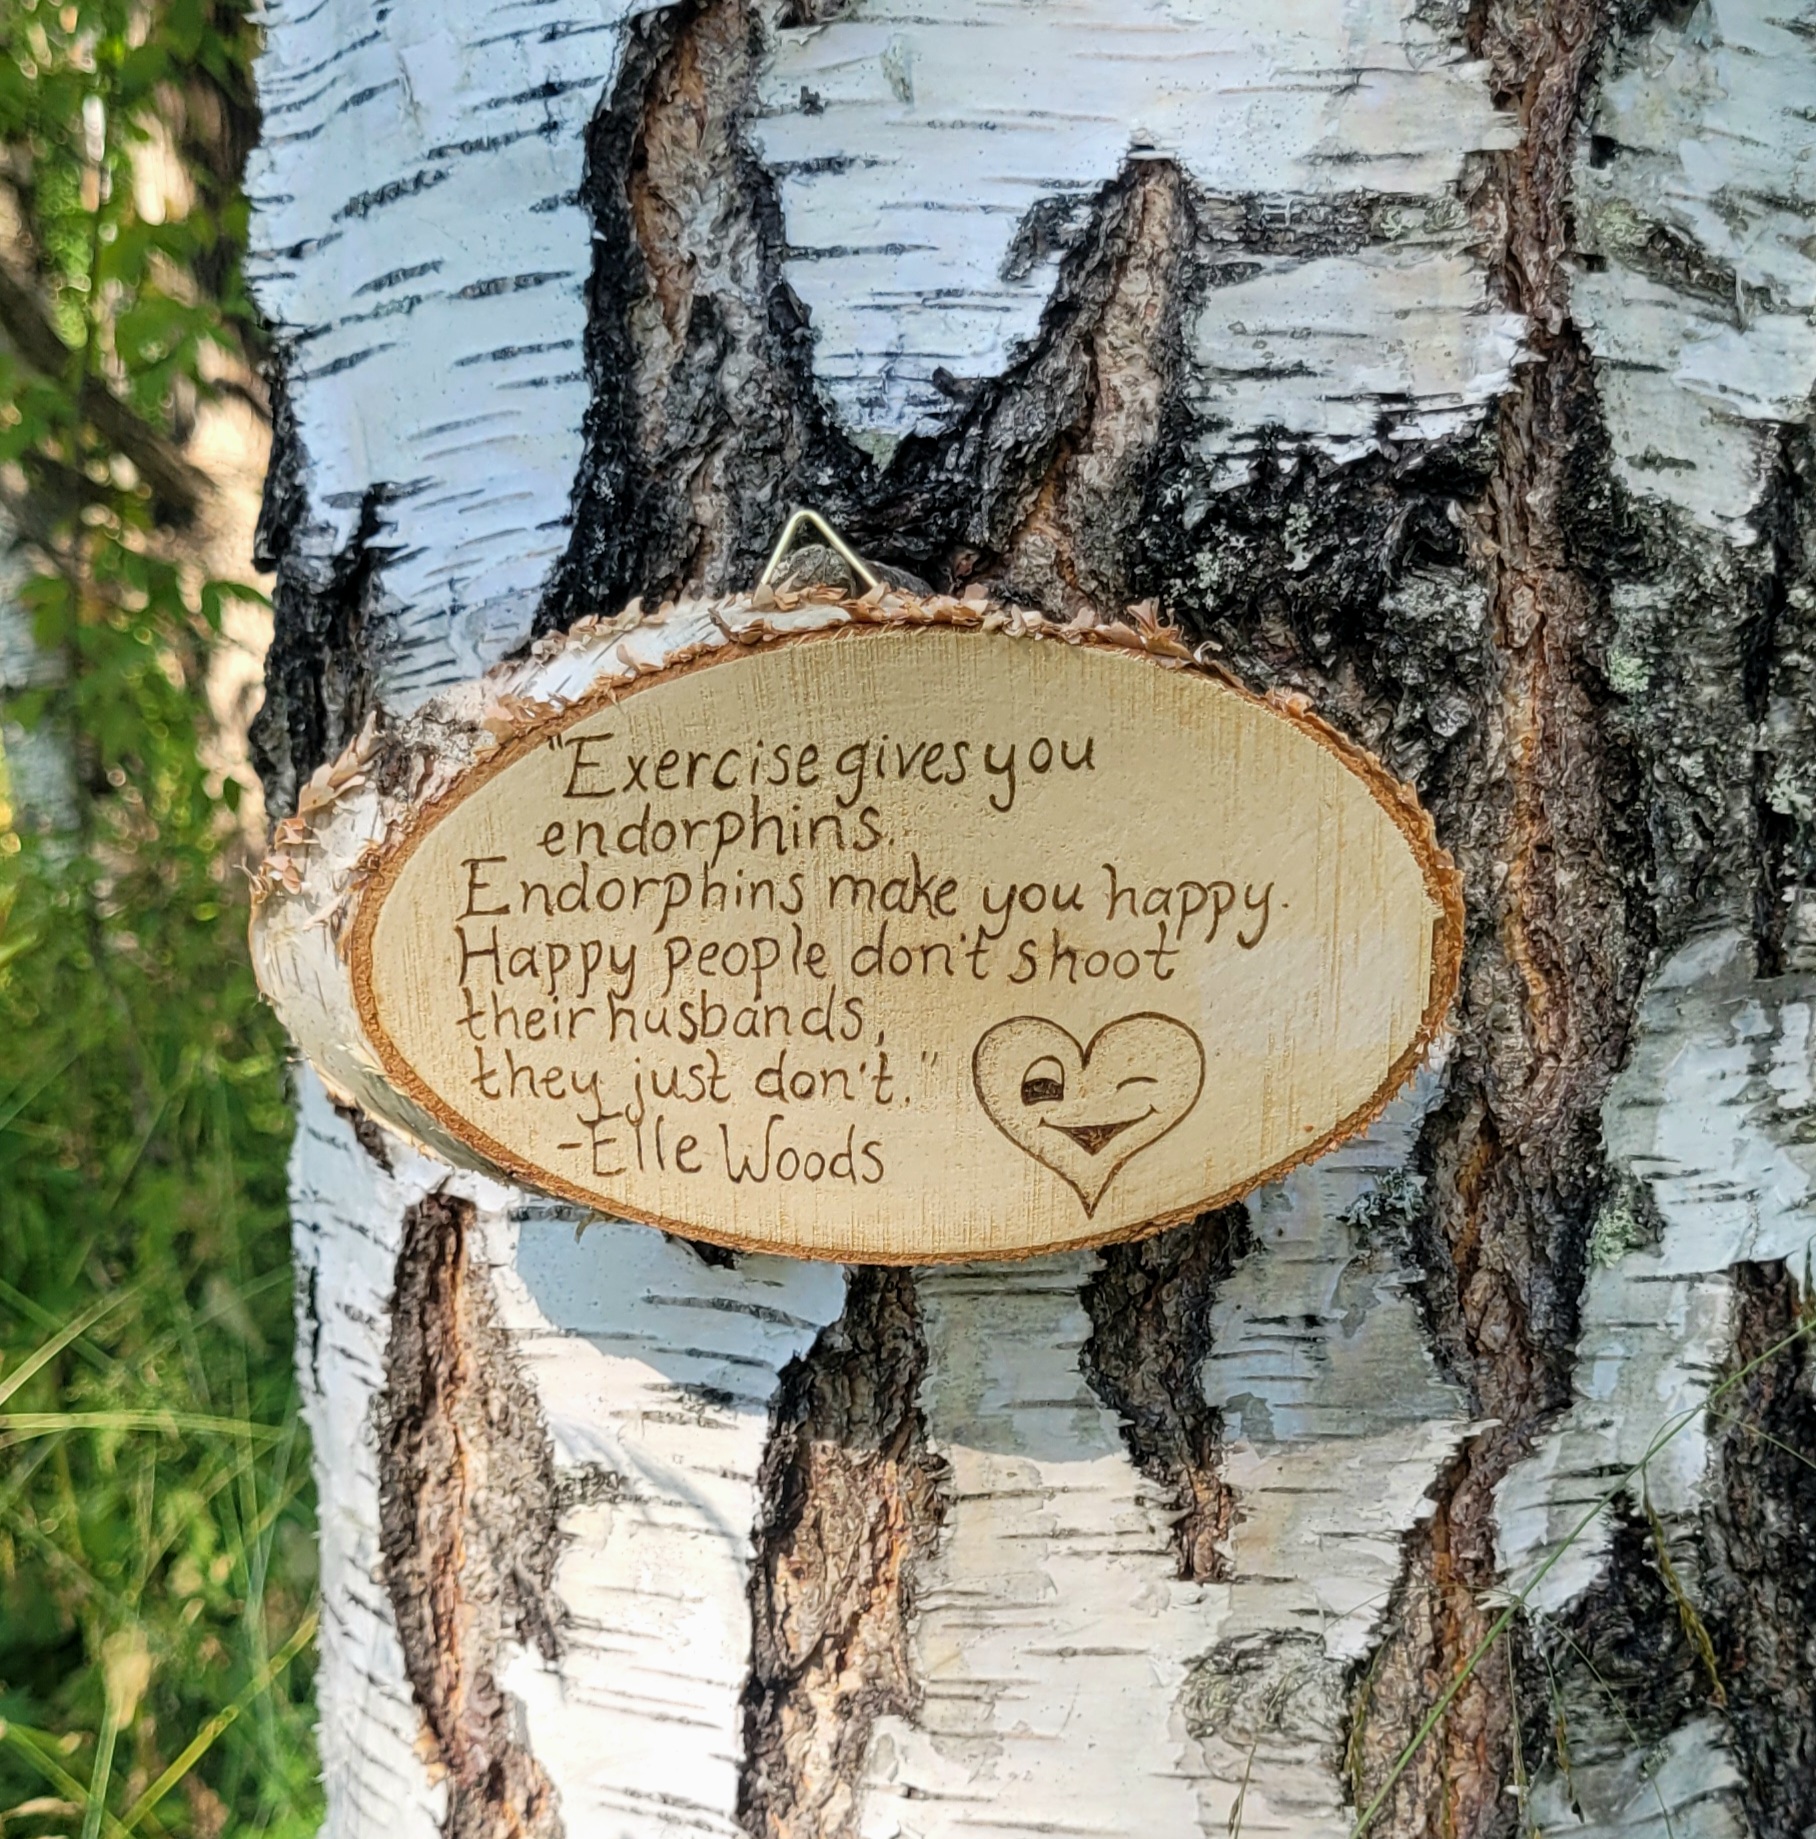 "Exercise gives you
endorphins.
Endorphins make you happy.
Happy people don't shoot
their husbands,
they just don't."
-Elle Woods